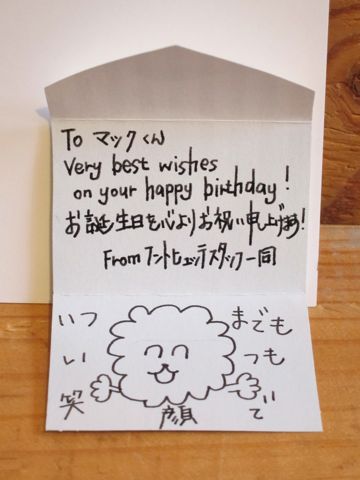 To マックくん
Very best wishes
on your happy birthday!
お誕生日を心よりお祝い申上げます!
From フントヒュッテスタッフ一同
いつ までも
い つも
笑 顔 で